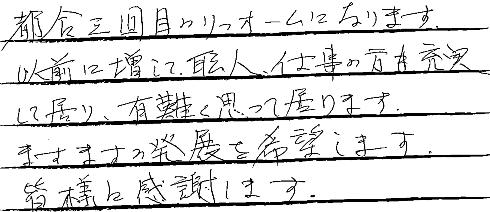 都合三回目のリフォームになります.
以前に増して、職人、仕事の方も充実
して居り、有難く思って居ります.
ますますの発展を希望します.
皆様に感謝します.